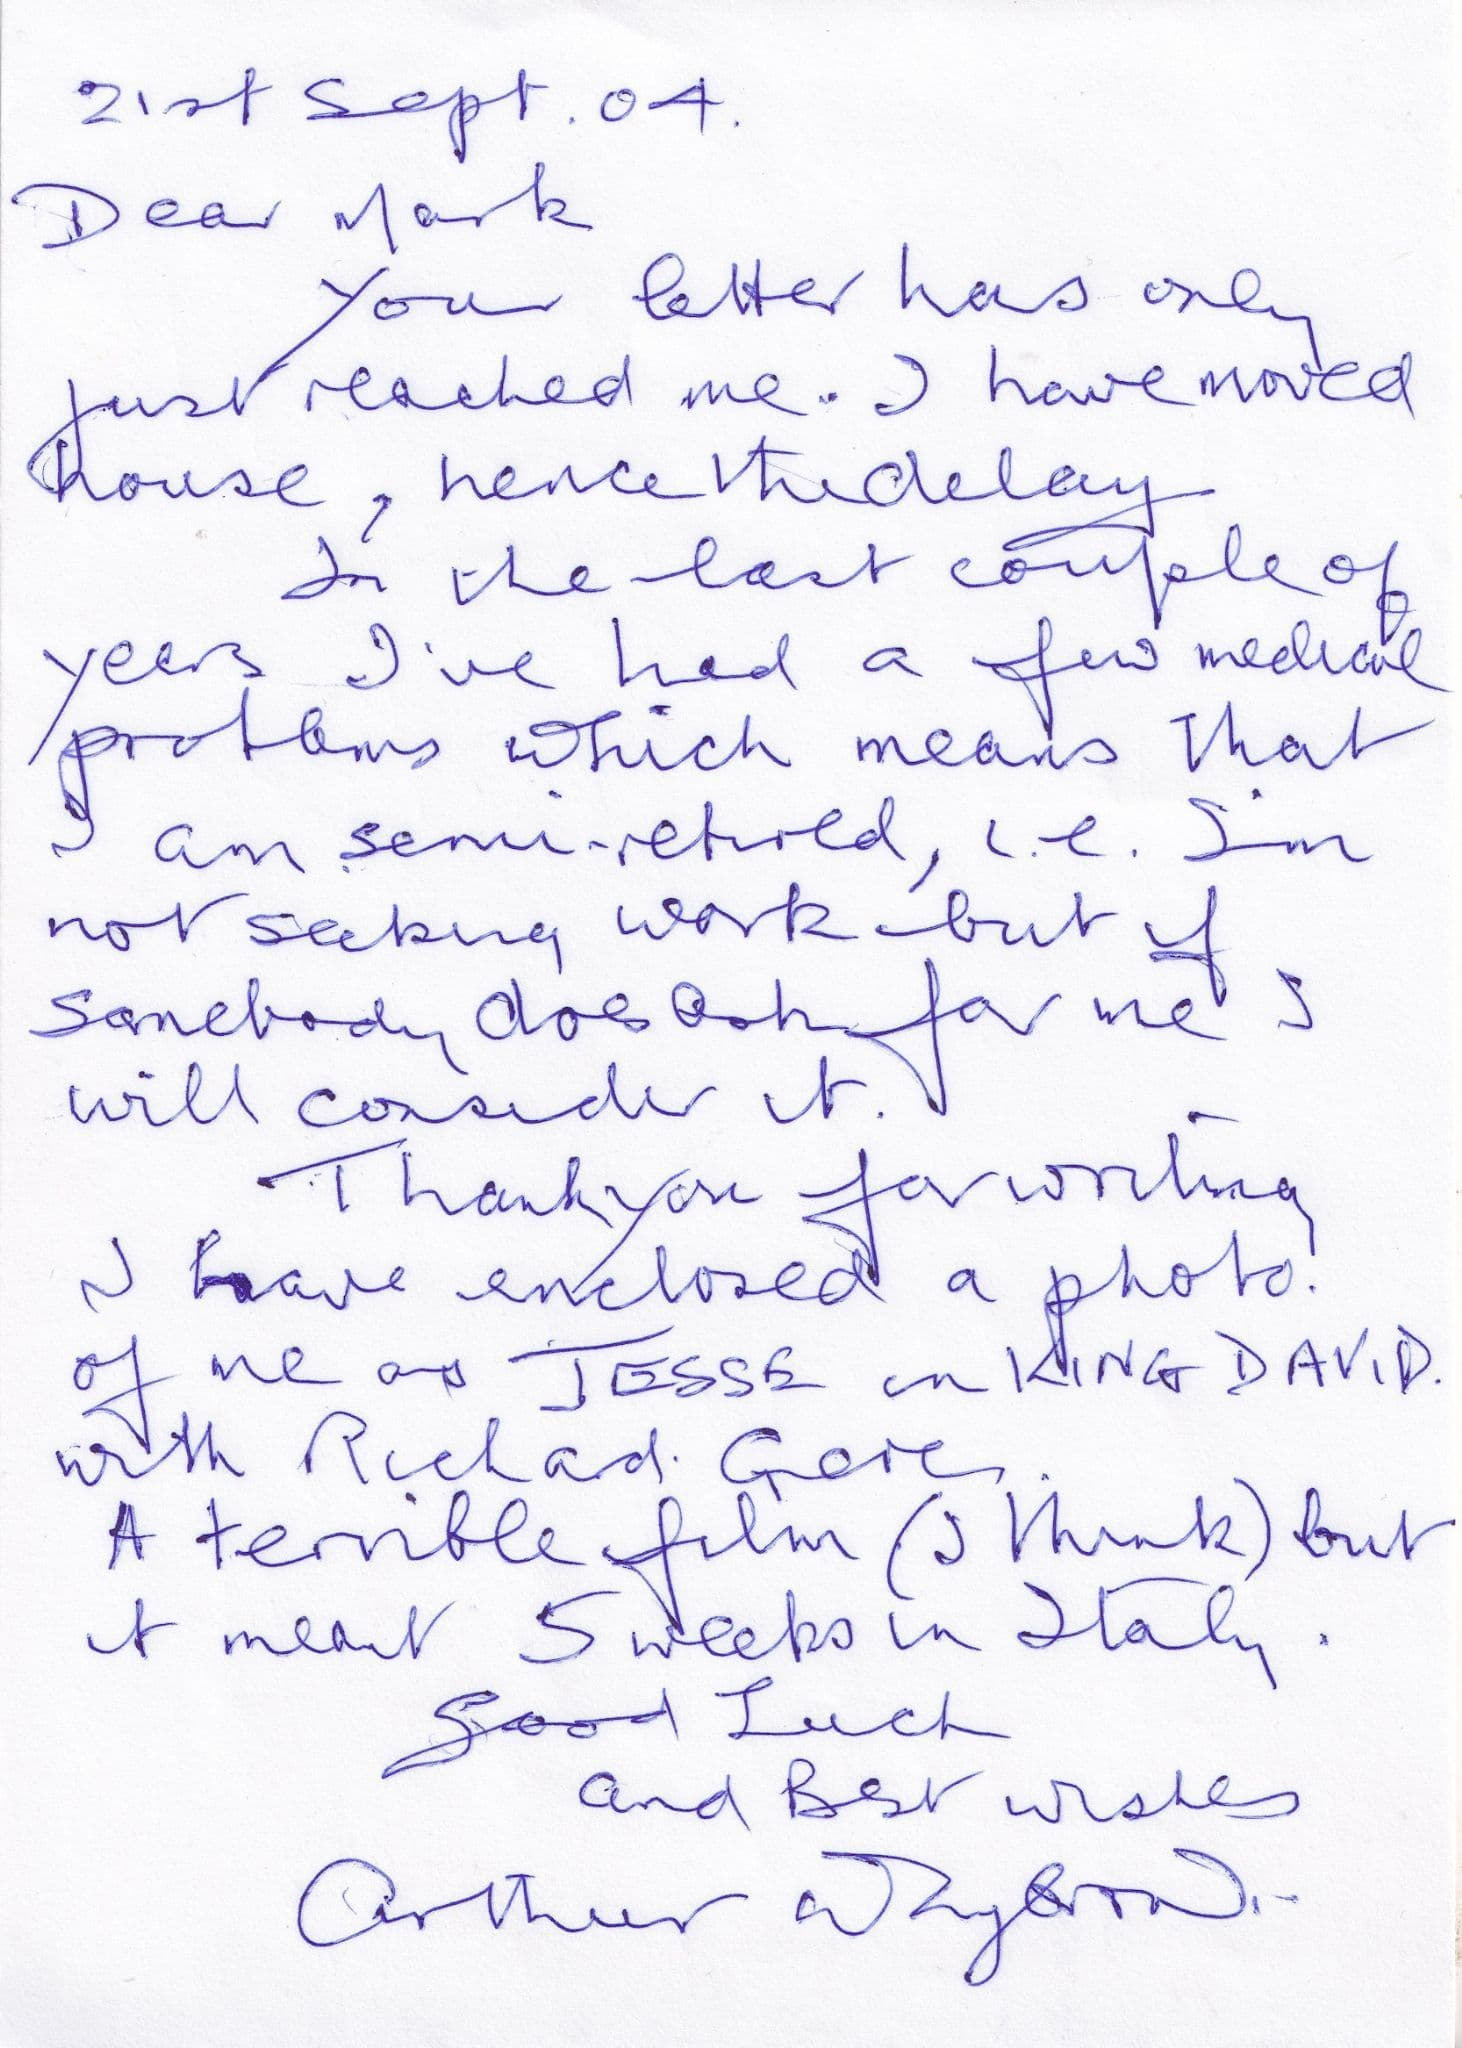 21st Sept. 04.
Dear Mark
Your letter has only
just reached me. I have moved
house, hence the delay
In the last couple of
years I've had a few medical
problems which means that
I am semi-retired, i.e. I'm
not seeking work but if
somebody does ask for me I
will consider it.
Thank you for writing
I have enclosed a photo.
of me as JESSE in KING DAVID.
with Richard Gere.
A terrible film (I think) but
it meant 5 weeks in Italy.
Good Luck
and Best wishes
Arthur Whybrow.